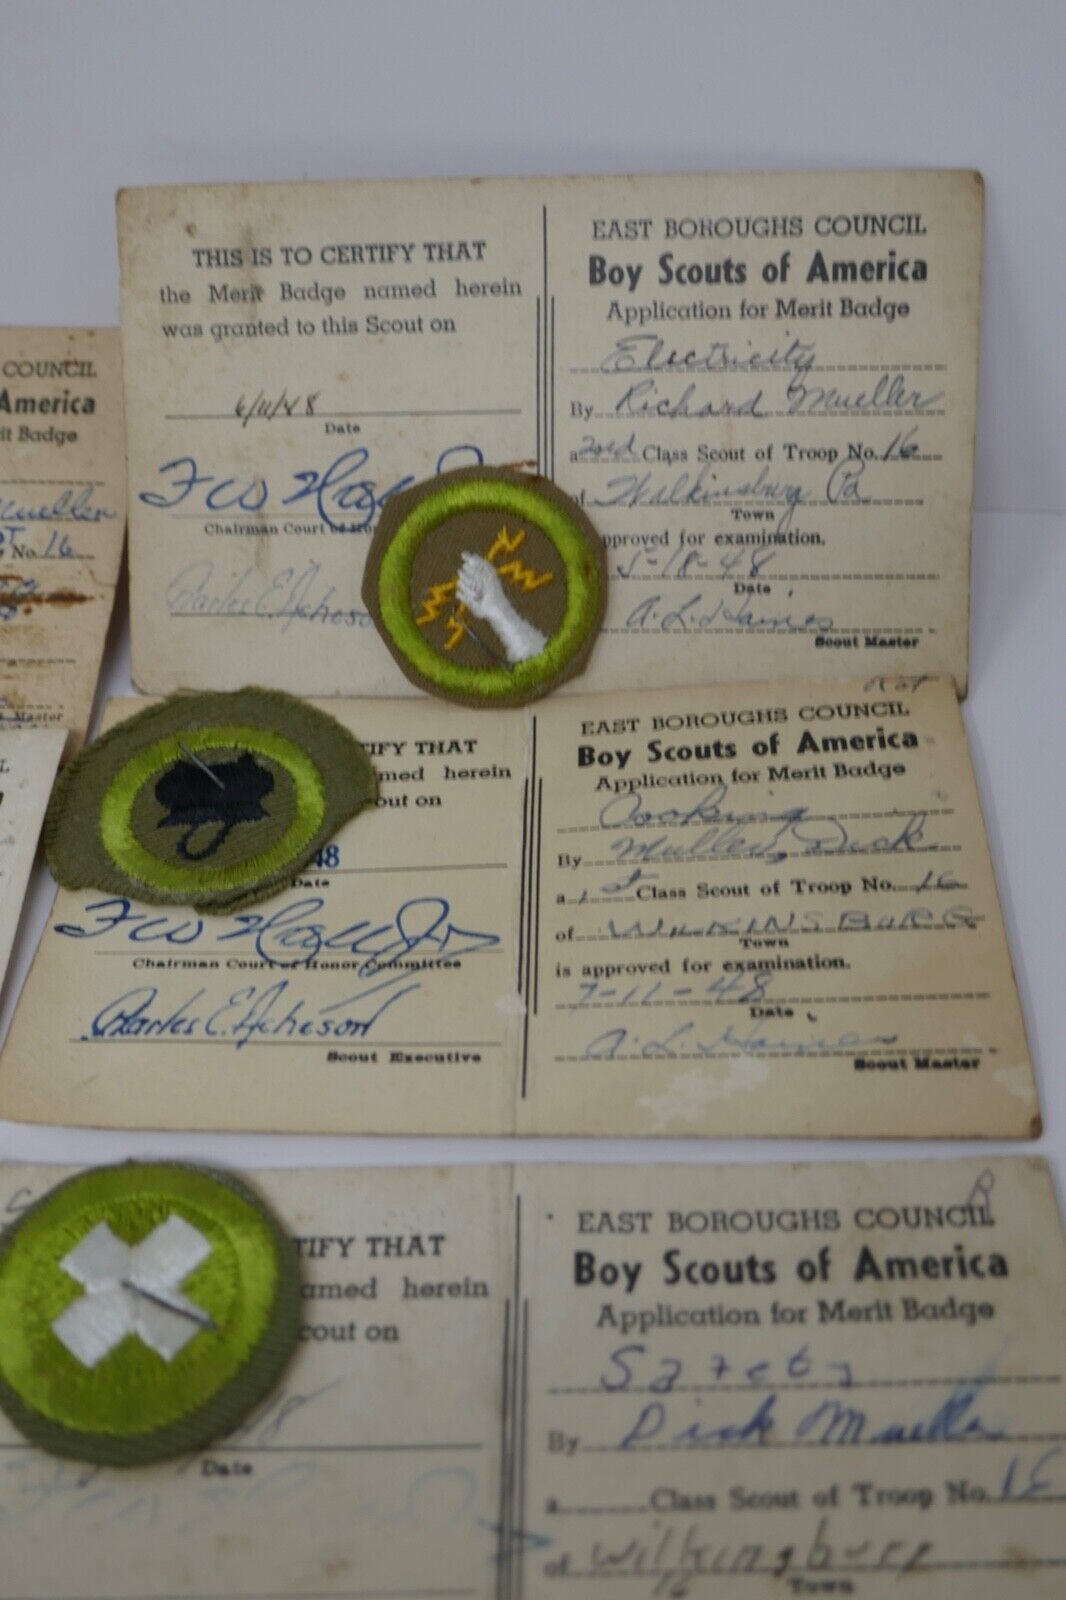 THIS IS TO CERTIFY THAT
the Merit Badge named herein
was granted to this Scout on
6/11/48
Date
F W
Chairman Court of Hon
Charles E. Acheso
EAST BOROUGHS COUNCIL
Boy Scouts of America
Application for Merit Badge
Electricity
By Richard Mueller
a 2nd Class Scout of Troop No. 16
of Wilkinsburg Pa
Town
pproved for examination.
5-18-48
Date
A. L. Haines
Scout Master
COUNCIL
America
it Badge
Mueller
ST
No. 16
Master
TIFY THAT
amed herein
out on
48
Date
F W
Chairman Court of Honor Committee
Charles E. Acheson
Scout Executive
EAST BOROUGHS COUNCIL
Boy Scouts of America
Application for Merit Badge
Cooking
By Muller, Dick
a 1st Class Scout of Troop No. 16
of WILKINSBURG
Town
is approved for examination.
7-11-48
Date
A. L. Haines
Scout Master
L
TIFY THAT
amed herein
cout on
48
Date
R
EAST BOROUGHS COUNCIL
Boy Scouts of America
Application for Merit Badge
Safety
By Dick Mueller
a Class Scout of Troop No. 16
of Wilkinsburg
16 Town